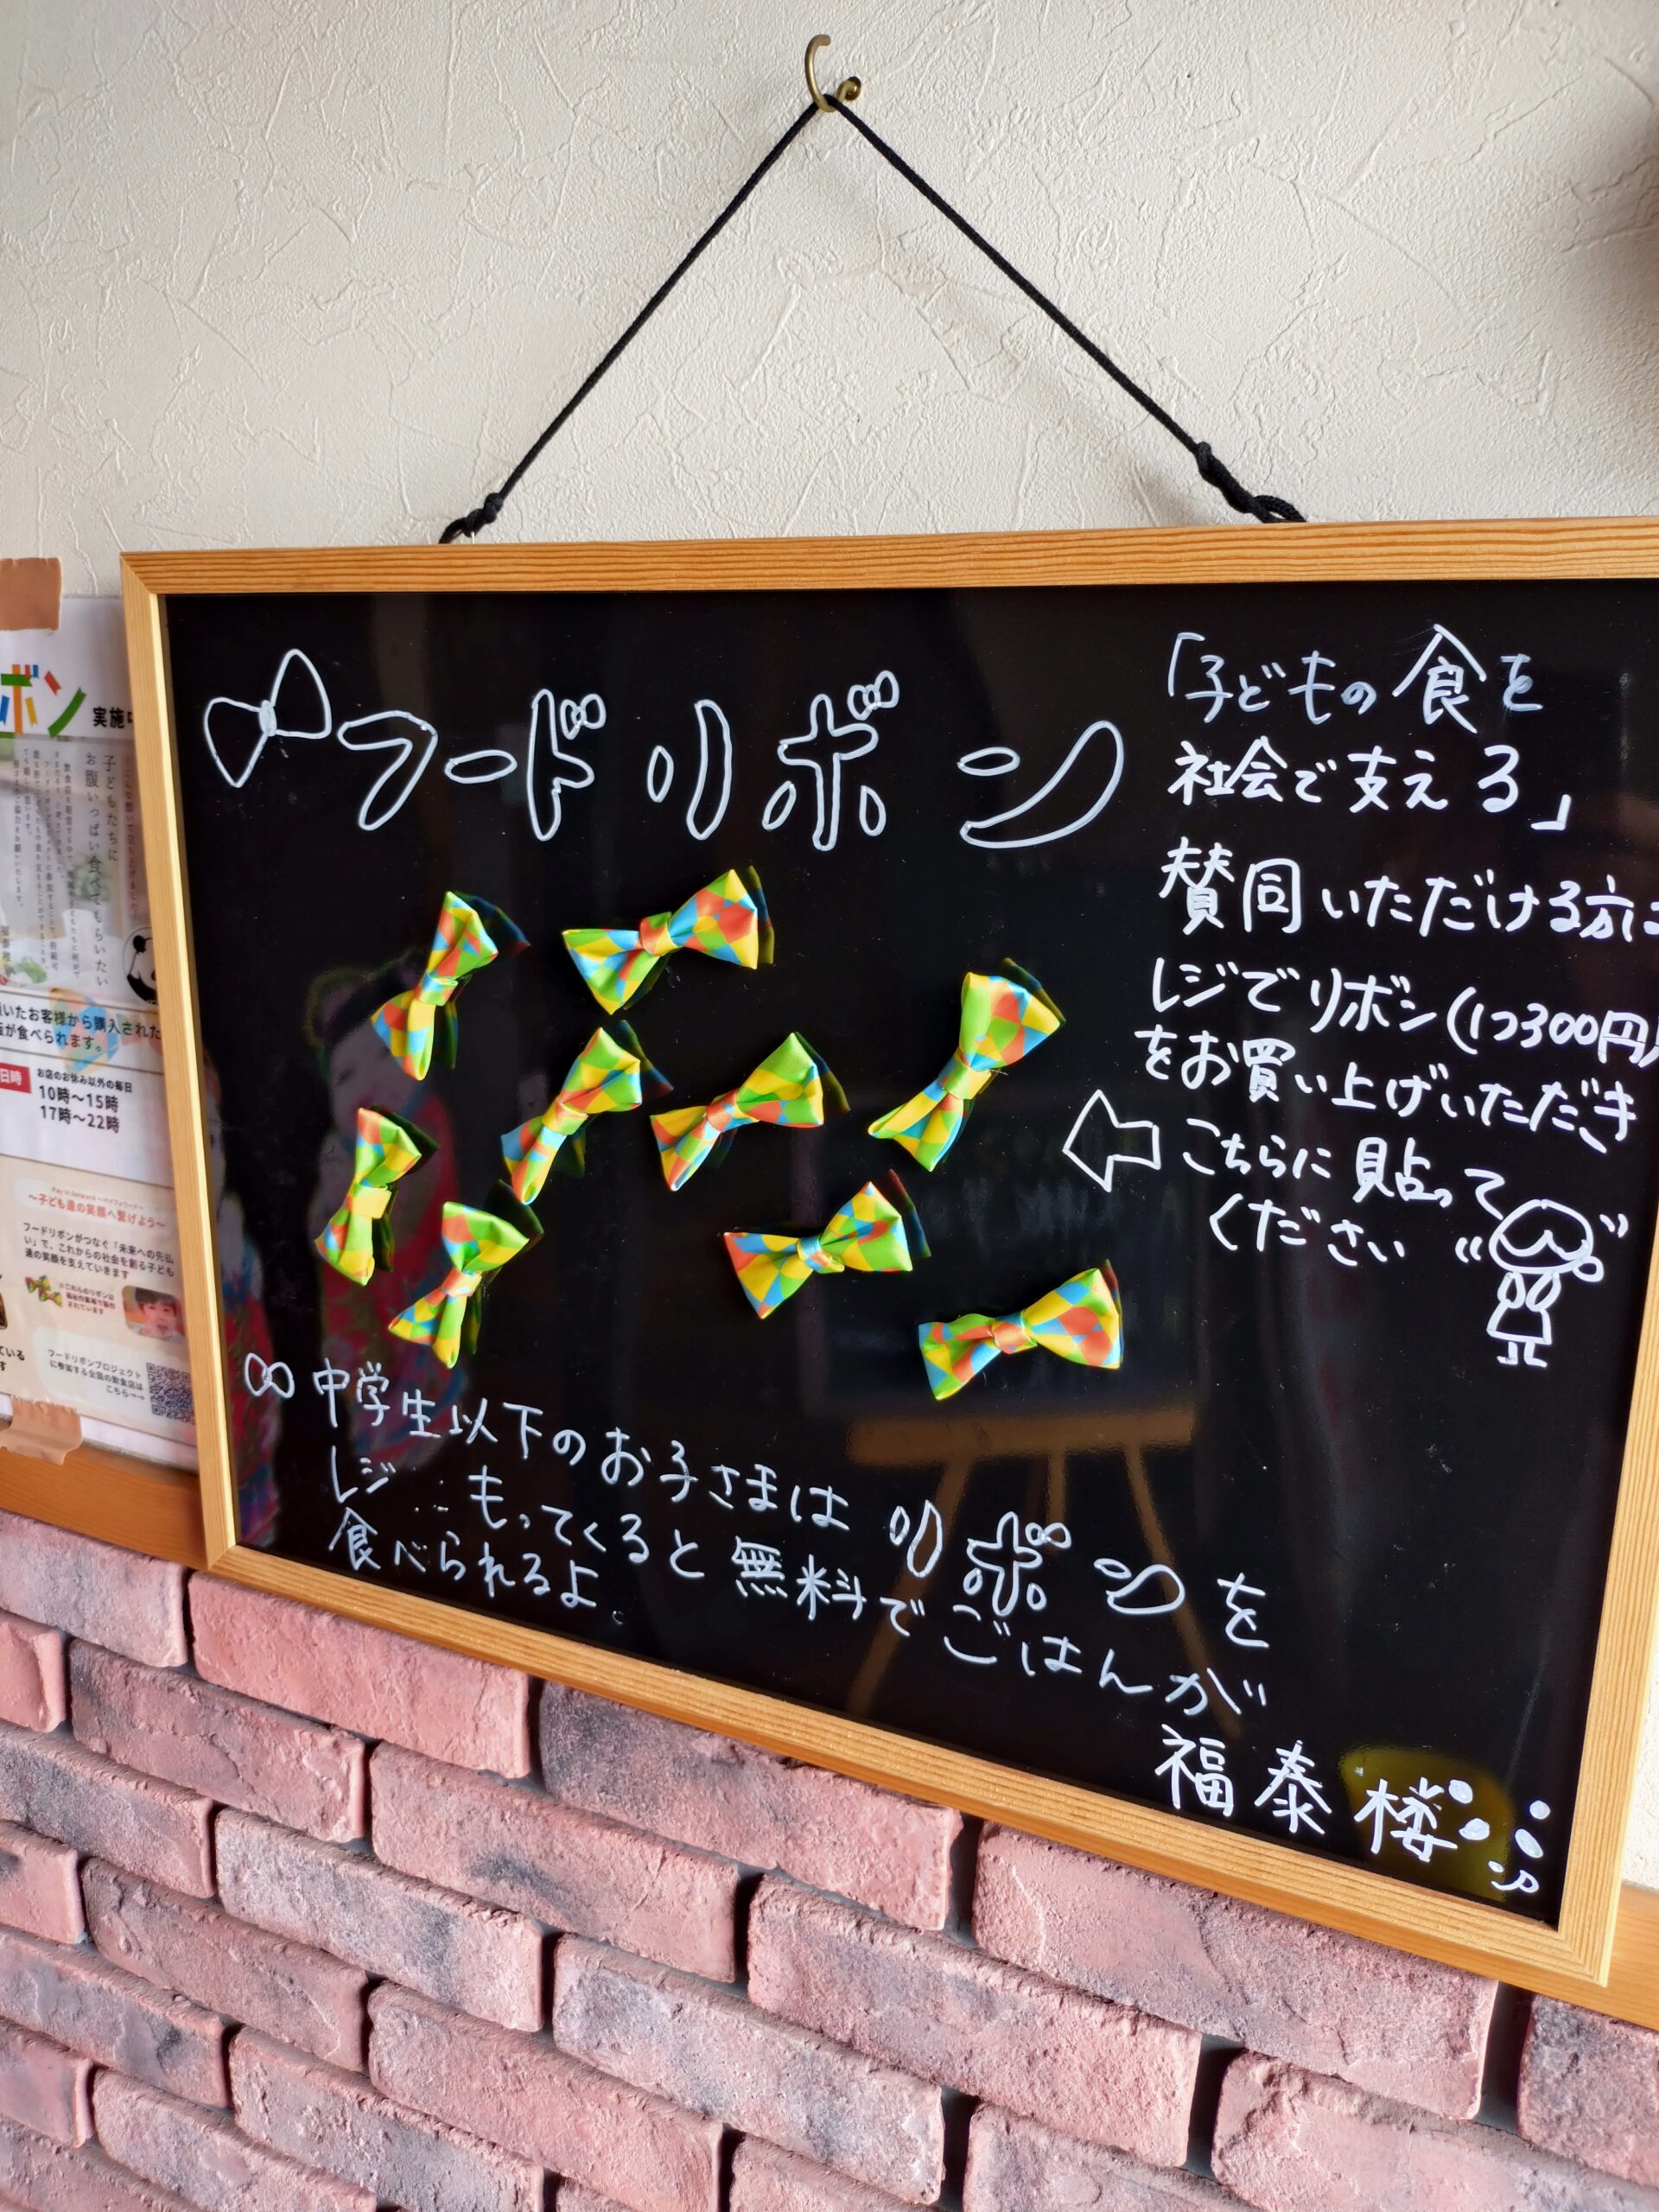 フードリボン
「子どもの食を
社会で支える」
賛同いただける方は
レジでリボン(1つ300円)
をお買い上げいただき
こちらに貼って
ください
中学生以下のお子さまは リボン を
レジ もってくると無料でごはんが
食べられるよ。
福泰楼
ボン 実施
子どもたちに
お腹いっぱい食べてもらいたい
いたお客様から購入された
が食べられます。
日時
お店のお休み以外の毎日
10時～15時
17時～22時
～子ども達の笑顔へ繋げよう～
フードリボンがつなぐ「未来への先払
い」で、これからの社会を創る子ども
達の笑顔を支えていきます
※これらのリボンは
福祉作業所で製作
されています
フードリボンプロジェクト
に参加する全国の飲食店は
こちら→→
ている